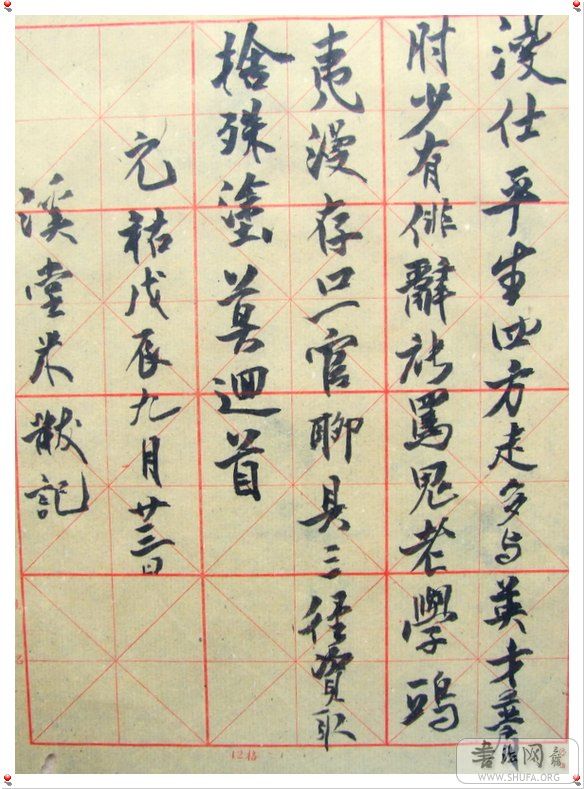 漫仕平生四方走多与英才並肩
肘少有俳辭能罵鬼老學鴟
夷漫存口一官聊具三徑資取
捨殊塗莫迴首
元祐戊辰九月廿三日
溪堂米黻記
12格
書法网
WWW.SHUFA.ORG